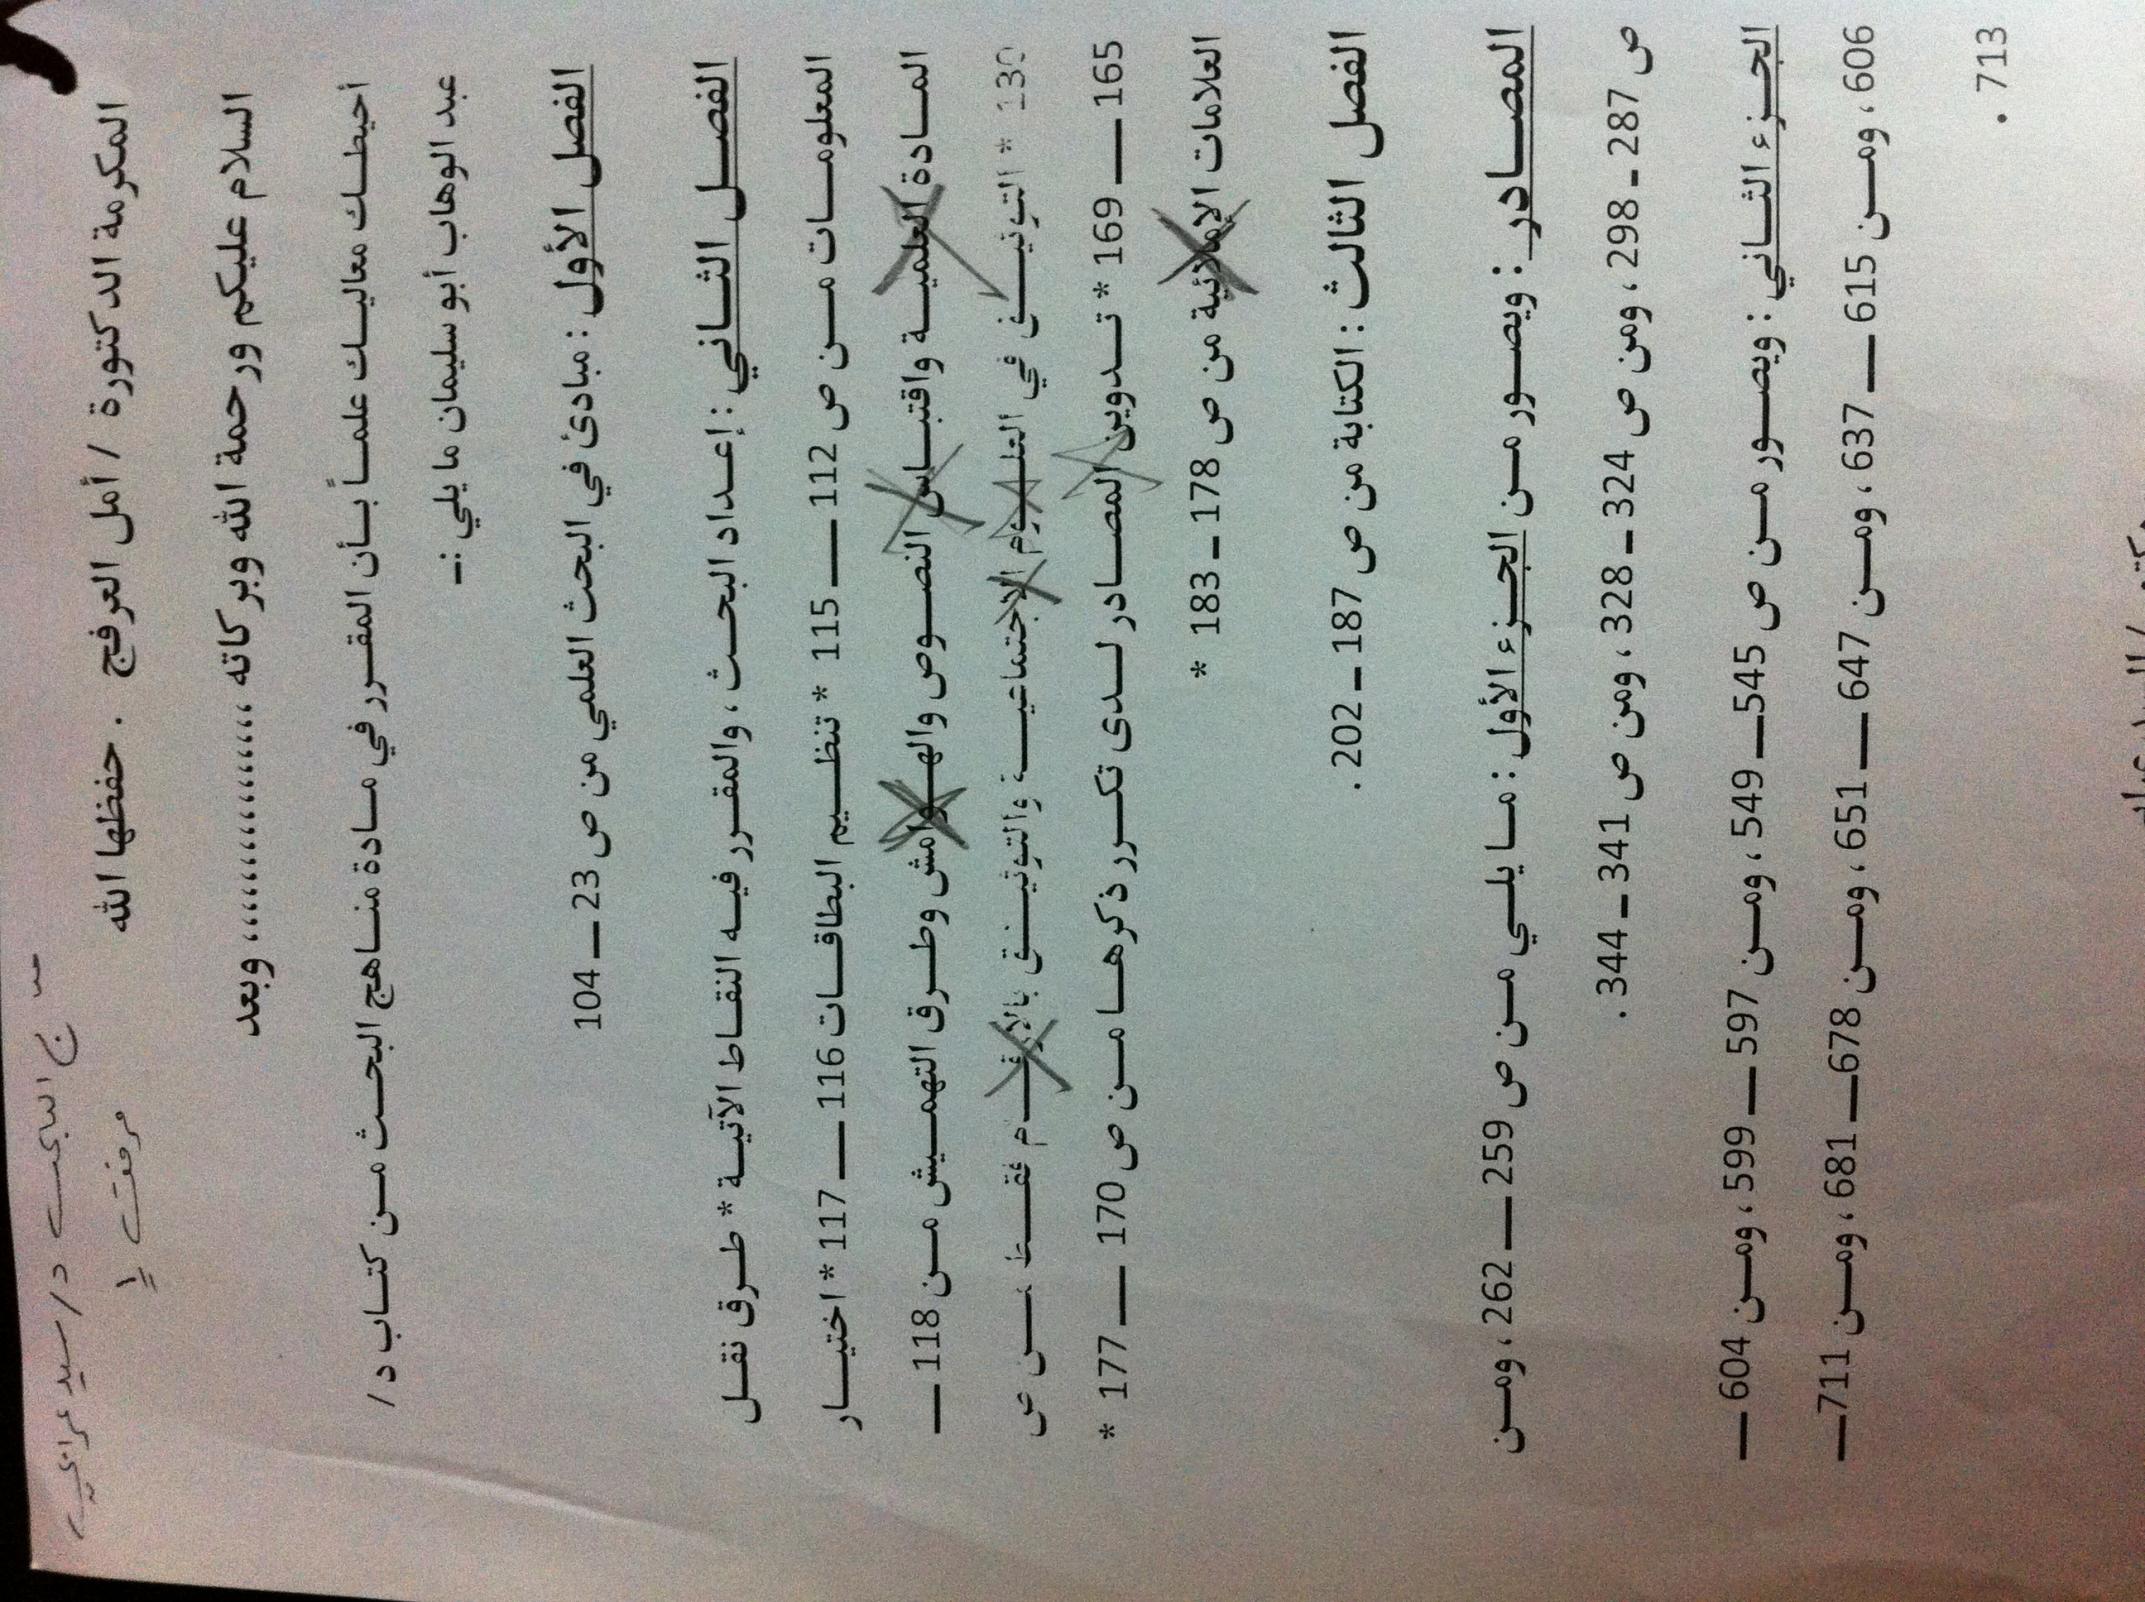 البحث د/ سيد
المكرمة الدكتورة / أمل العرفج . حفظها الله
السلام عليكم ورحمة الله وبركاته ،،،،،،،،،،،،،،،، وبعد
أحيطك معاليك علماً بأن المقرر في مادة مناهج البحث من كتاب د/
عبد الوهاب أبو سليمان ما يلي :-
الفصل الأول : مبادئ في البحث العلمي من ص 23 – 104
الفصل الثاني : إعداد البحث ، والمقرر فيه النقاط الآتية * طرق نقل
المعلومات من ص 112 – 115 * تنظيم البطاقات 116 – 117 * اختيار
المادة العلمية واقتباس النصوص والهوامش وطرق التهميش من 118 –
130 * التوثيق في العلوم الاجتماعية والتوثيق بالأرقام فقط من ص
165 – 169 * تدوين المصادر لدى تكرر ذكرها من ص 170 – 177 *
العلامات الإملائية من ص 178 – 183 *
الفصل الثالث : الكتابة من ص 187 – 202 .
المصادر : ويصور من الجزء الأول : ما يلي من ص 259 – 262 ، ومن
ص 287 – 298 ، ومن ص 324 – 328 ، ومن ص 341 – 344 .
الجزء الثاني : ويصور من ص 545 – 549 ، ومن 597 – 599 ، ومن 604 –
606 ، ومن 615 – 637 ، ومن 647 – 651 ، ومن 678 – 681 ، ومن 711 –
713 .